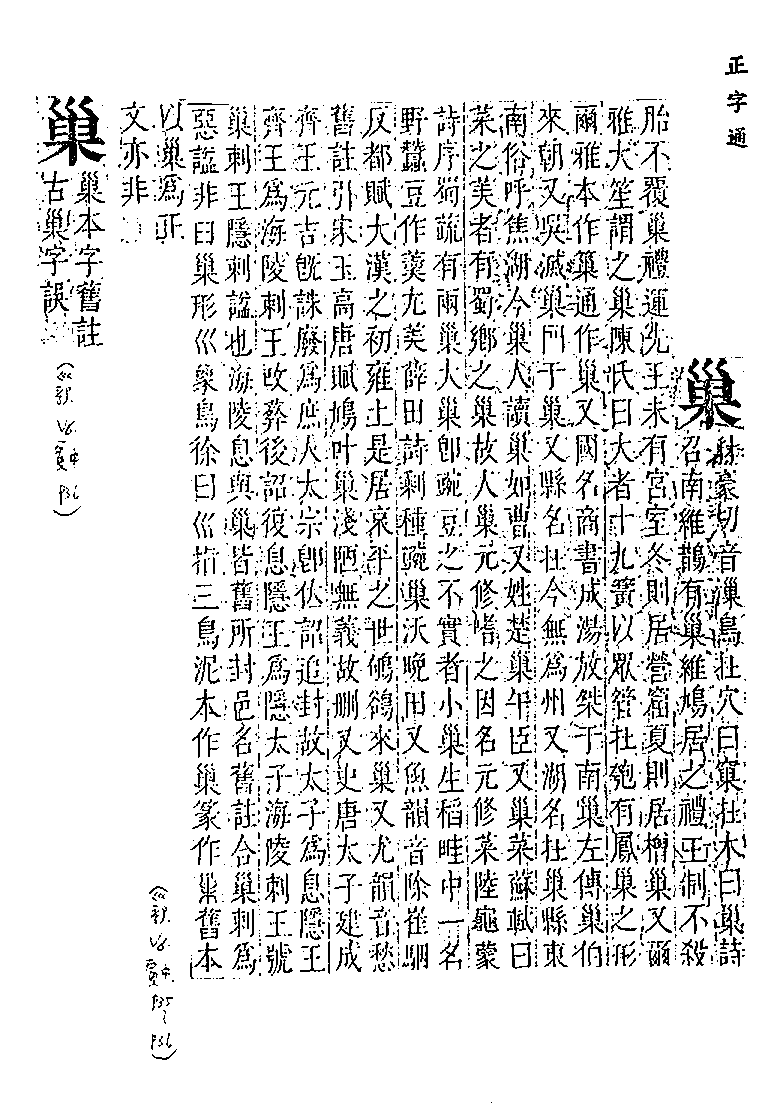 正字通
巢
豪切音漅鳥在穴曰窠在木曰巢詩
召南維鵲有巢維鳩居之禮王制不殺
胎不覆巢禮運先王未有宮室冬則居營窟夏則居橧巢又爾
雅大笙謂之巢陳氏曰大者十九簧以眾管在匏有鳳巢之形
爾雅本作䉭通作巢又國名商書成湯放桀于南巢左傳巢伯
來朝又吳滅巢門于巢又縣名在今無為州又湖名在巢縣東
南俗呼焦湖今巢人讀巢如曹又姓楚巢午臣又巢菜蘇軾曰
菜之美者有蜀鄉之巢故人巢元修嗜之因名元修菜陸龜蒙
詩序蜀蔬有兩巢大巢卽豌豆之不實者小巢生稻畦中一名
野蠶豆作羹尤美薛田詩剩種豌巢沃晚田又魚韻音除崔駰
反都賦大漢之初雍土是居哀平之世鳲鵒來巢又尤韻音愁
舊註引宋玉高唐賦鳩叶巢淺陋無義故刪又史唐太子建成
齊王元吉旣誅廢為庶人太宗卽位詔追封故太子為息隱王
齊王為海陵剌王改葬後詔復息隱王為隱太子海陵剌王號
巢剌王隱剌諡也海陵息與巢皆舊所封邑名舊註合巢剌為
惡諡非曰巢形巛象鳥徐曰巛指三鳥泥本作巢篆作巢舊本
以巢爲正
文亦非
巢
巢本字舊註
古巢字誤